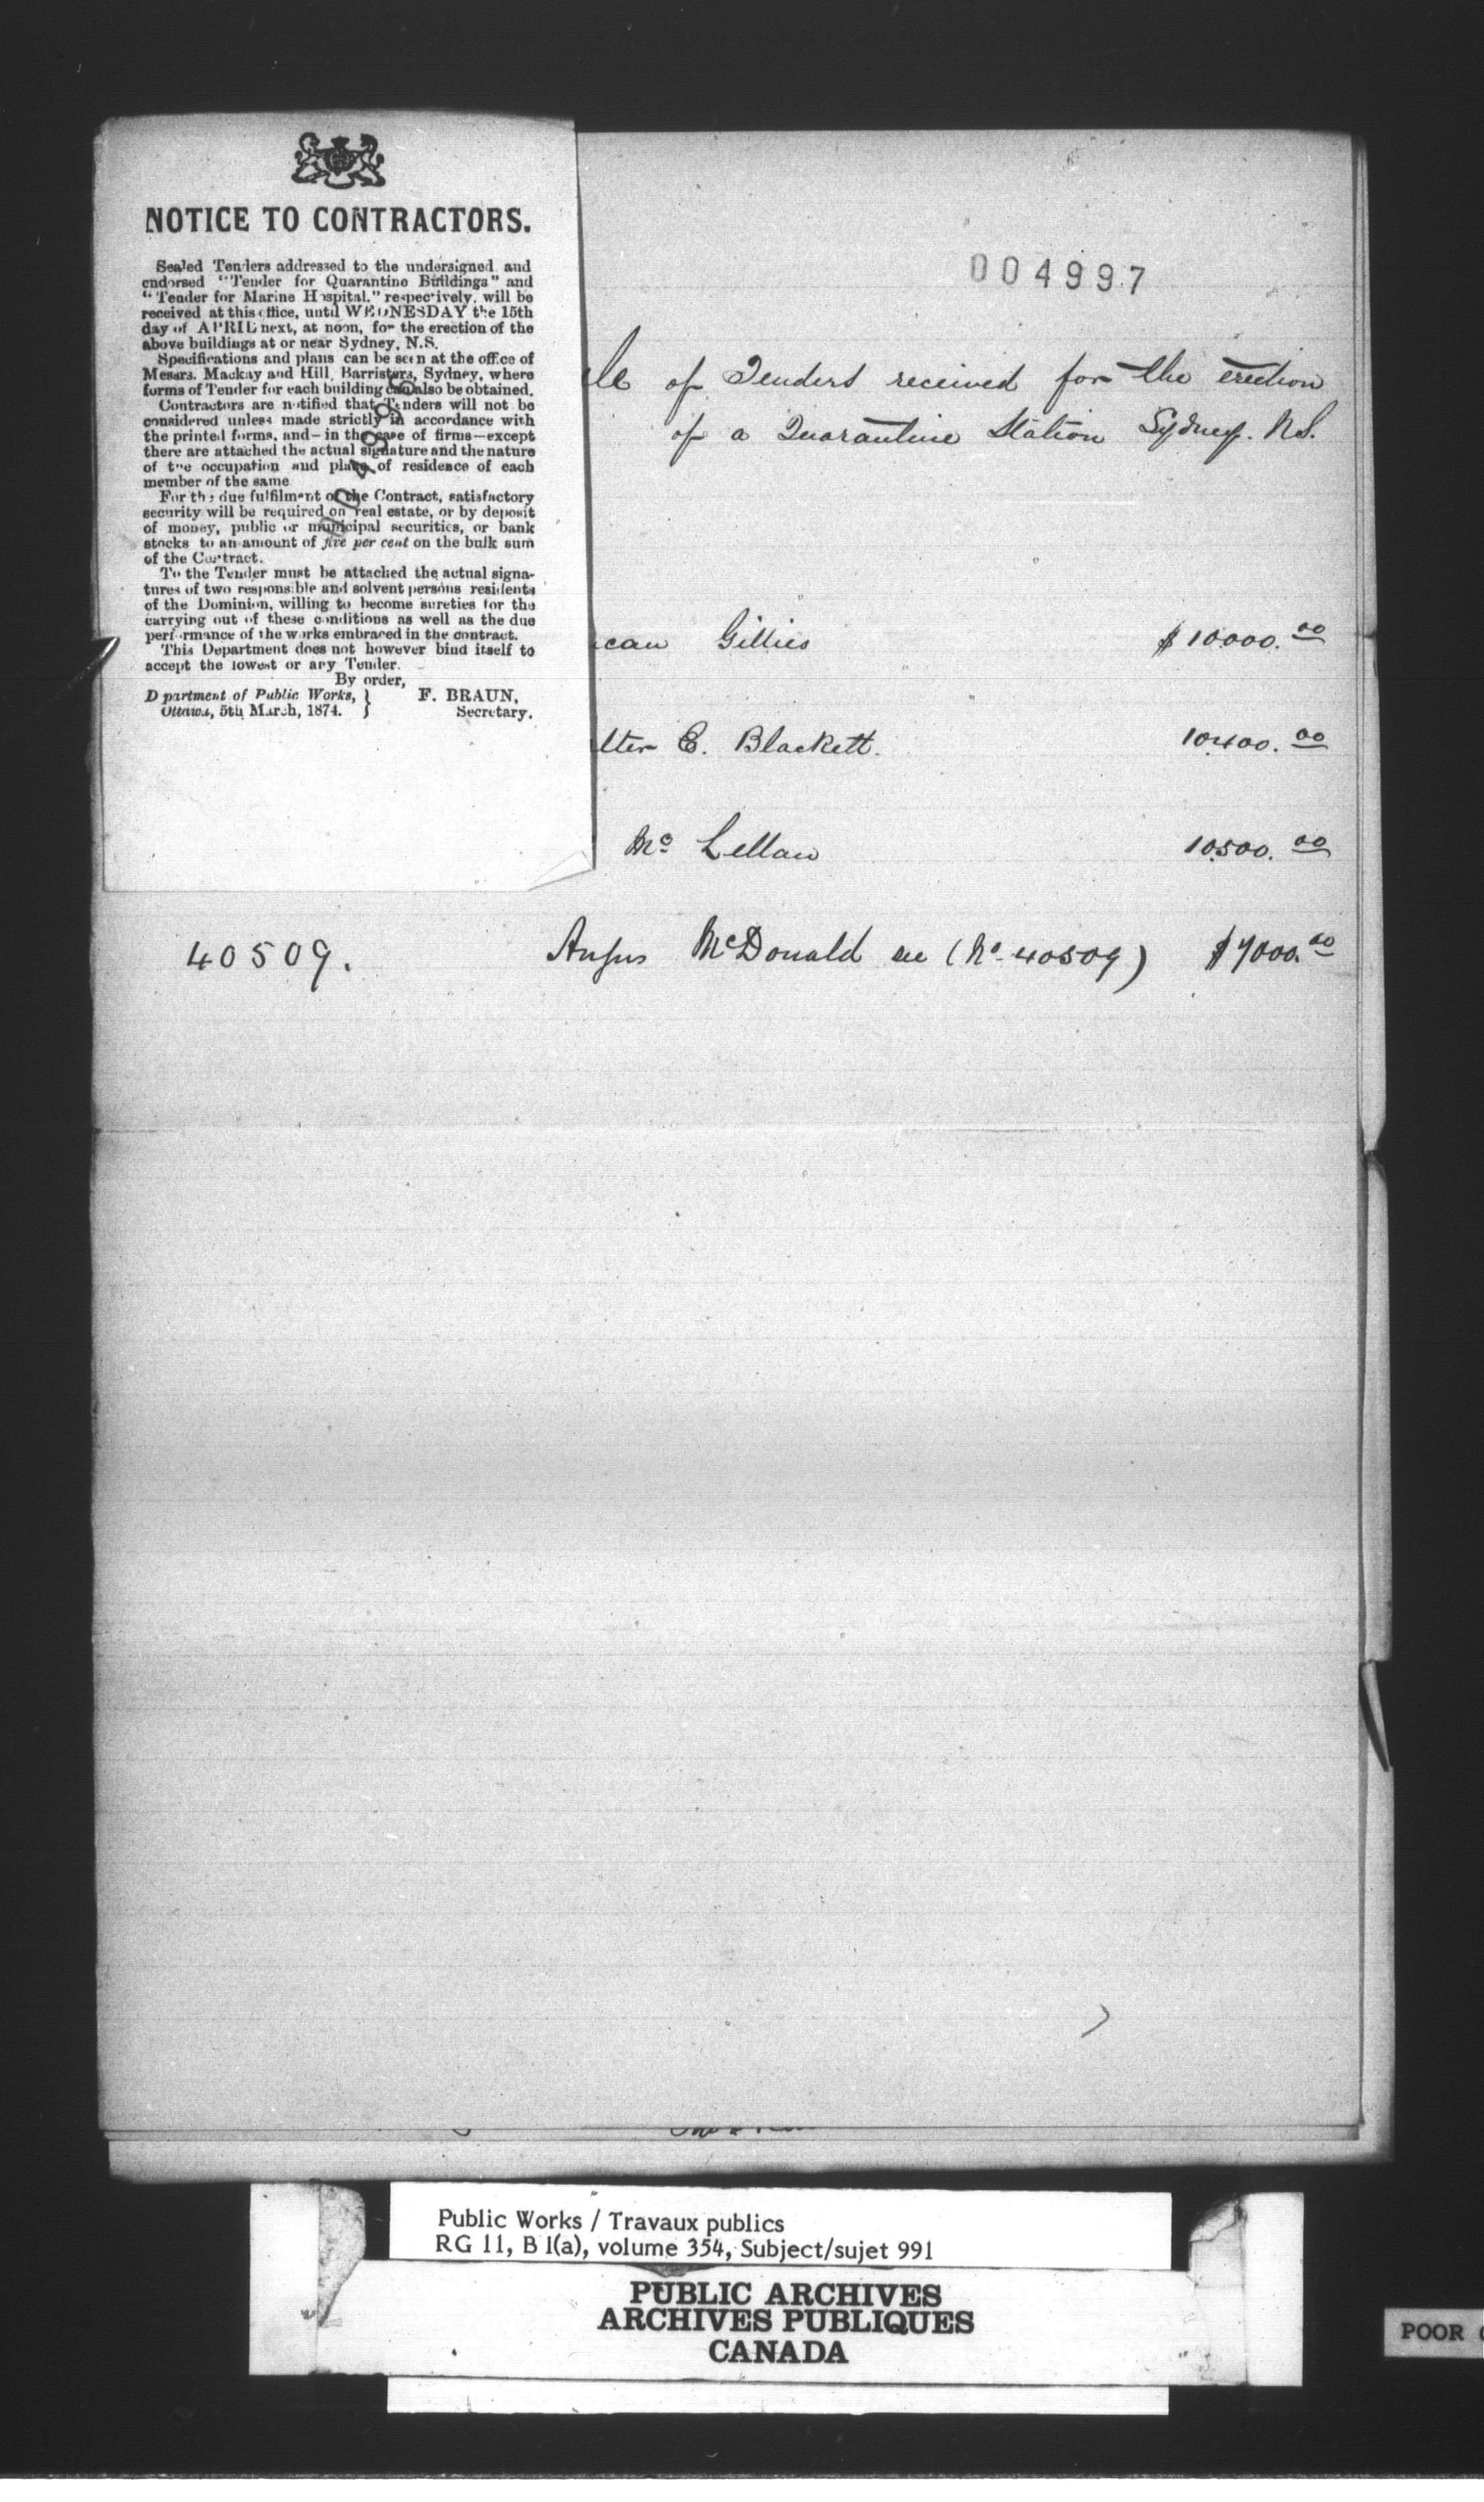 NOTICE TO CONTRACTORS.
Sealed Tenders addressed to the undersigned and
endorsed "Tender for Quarantine Buildings" and
"Tender for Marine Hospital," respectively, will be
received at this office, until WEDNESDAY the 15th
day of APRIL next, at noon, for the erection of the
above buildings at or near Sydney, N.S.
Specifications and plans can be seen at the office of
Messrs. Mackay and Hill, Barristers, Sydney, where
forms of Tender for each building can also be obtained.
Contractors are notified that Tenders will not be
considered unless made strictly in accordance with
the printed forms, and—in the case of firms—except
there are attached the actual signature and the nature
of the occupation and place of residence of each
member of the same
For the due fulfilment of the Contract, satisfactory
security will be required on real estate, or by deposit
of money, public or municipal securities, or bank
stocks to an amount of five per cent on the bulk sum
of the Contract.
To the Tender must be attached the actual signa-
tures of two responsible and solvent persons residents
of the Dominion, willing to become sureties for the
carrying out of these conditions as well as the due
performance of the works embraced in the contract.
This Department does not however bind itself to
accept the lowest or any Tender.
By order,
D partment of Public Works, } F. BRAUN,
Ottawa, 5th March, 1874. } Secretary.
004997
le of Tenders received for the erection
of a Quarantine Station Sydney. N.S.
can Gillies $10.000.00
lter E. Blackett. 10.400.00
Mc Lellan 10.500.00
40509. Angus McDonald see (No 40509) $7000.00
Public Works / Travaux publics
RG 11, B 1(a), volume 354, Subject/sujet 991
PUBLIC ARCHIVES
ARCHIVES PUBLIQUES
CANADA
POOR